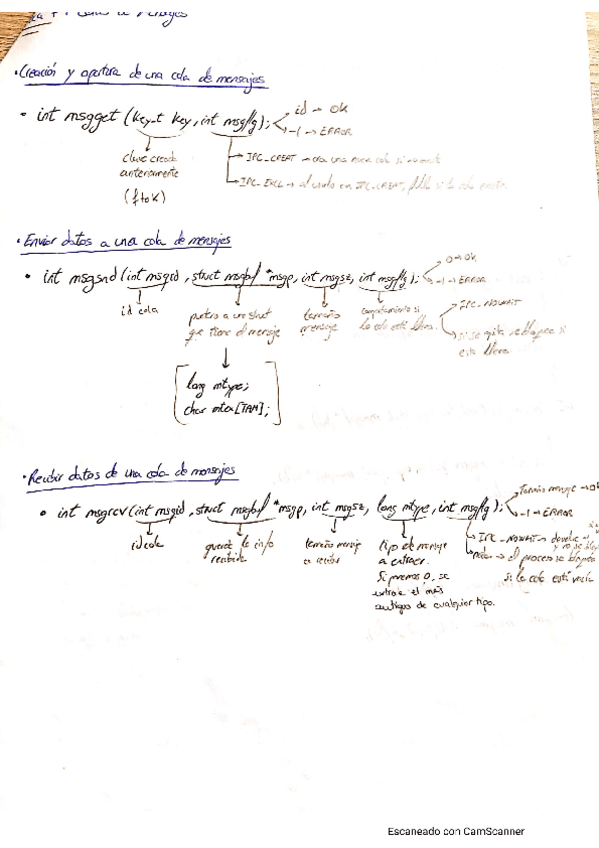 de Mensajes
• Creación y apertura de una cola de mensajes
• int msgget (key_t key, int msgflg);
id → ok
-1 → ERROR
clave creada
anteriormente
(ftok)
IPC_CREAT → crea una nueva cola si no existe
IPC_EXCL → al usarlo con IPC_CREAT, falla si la cola existe.
• Enviar datos a una cola de mensajes
• int msgsnd (int msqid, struct msgbuf *msgp, int msgsz, int msgflg);
0 → ok
-1 → ERROR
id cola
puntero a un struct
que tiene el mensaje
tamaño
mensaje
comportamiento si
la cola está llena.
IPC_NOWAIT
si se quita se bloquea si
esta llena
long mtype;
char mtex[TAM];
• Recibir datos de una cola de mensajes
• int msgrcv (int msqid, struct msgbuf *msgp, int msgsz, long mtype, int msgflg);
Tamaño mensaje → ok
-1 → ERROR
id cola
guardé la info
recibida
tamaño mensaje
a recibir
tipo de mensaje
a extraer.
Si ponemos 0, se
extrae el más
antiguo de cualquier tipo.
IPC_NOWAIT → devuelve
y no se
→ el proceso se bloquea
si la cola está vacía
Escaneado con CamScanner